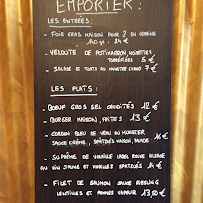 EMPORTER!
LES ENTRÉES:
- FOIE GRAS MAISON POUR 2 EN VERRINE
140 gr : 24 €
- VELOUTÉ DE POTIMARRON, NOISETTES
TORRÉFIÉES 5 €
- SALADE ET TOASTS AU MUNSTER CHAUD 7 €
LES PLATS:
- BŒUF GROS SEL CRUDITÉS 12 €
- BURGER MAISON, FRITES 13 €
- CORDON BLEU DE VEAU AU MUNSTER
SAUCE CRÈME, SPÄTZLES MAISON, SALADE 16 €
- SUPRÊME DE VOLAILLE LABEL ROUGE ALSACE
AU VIN JAUNE ET MORILLES SPATZLES 14 €
- FILET DE SAUMON SAUCE RIESLING
LENTILLES ET POMMES VAPEUR 13,50 €